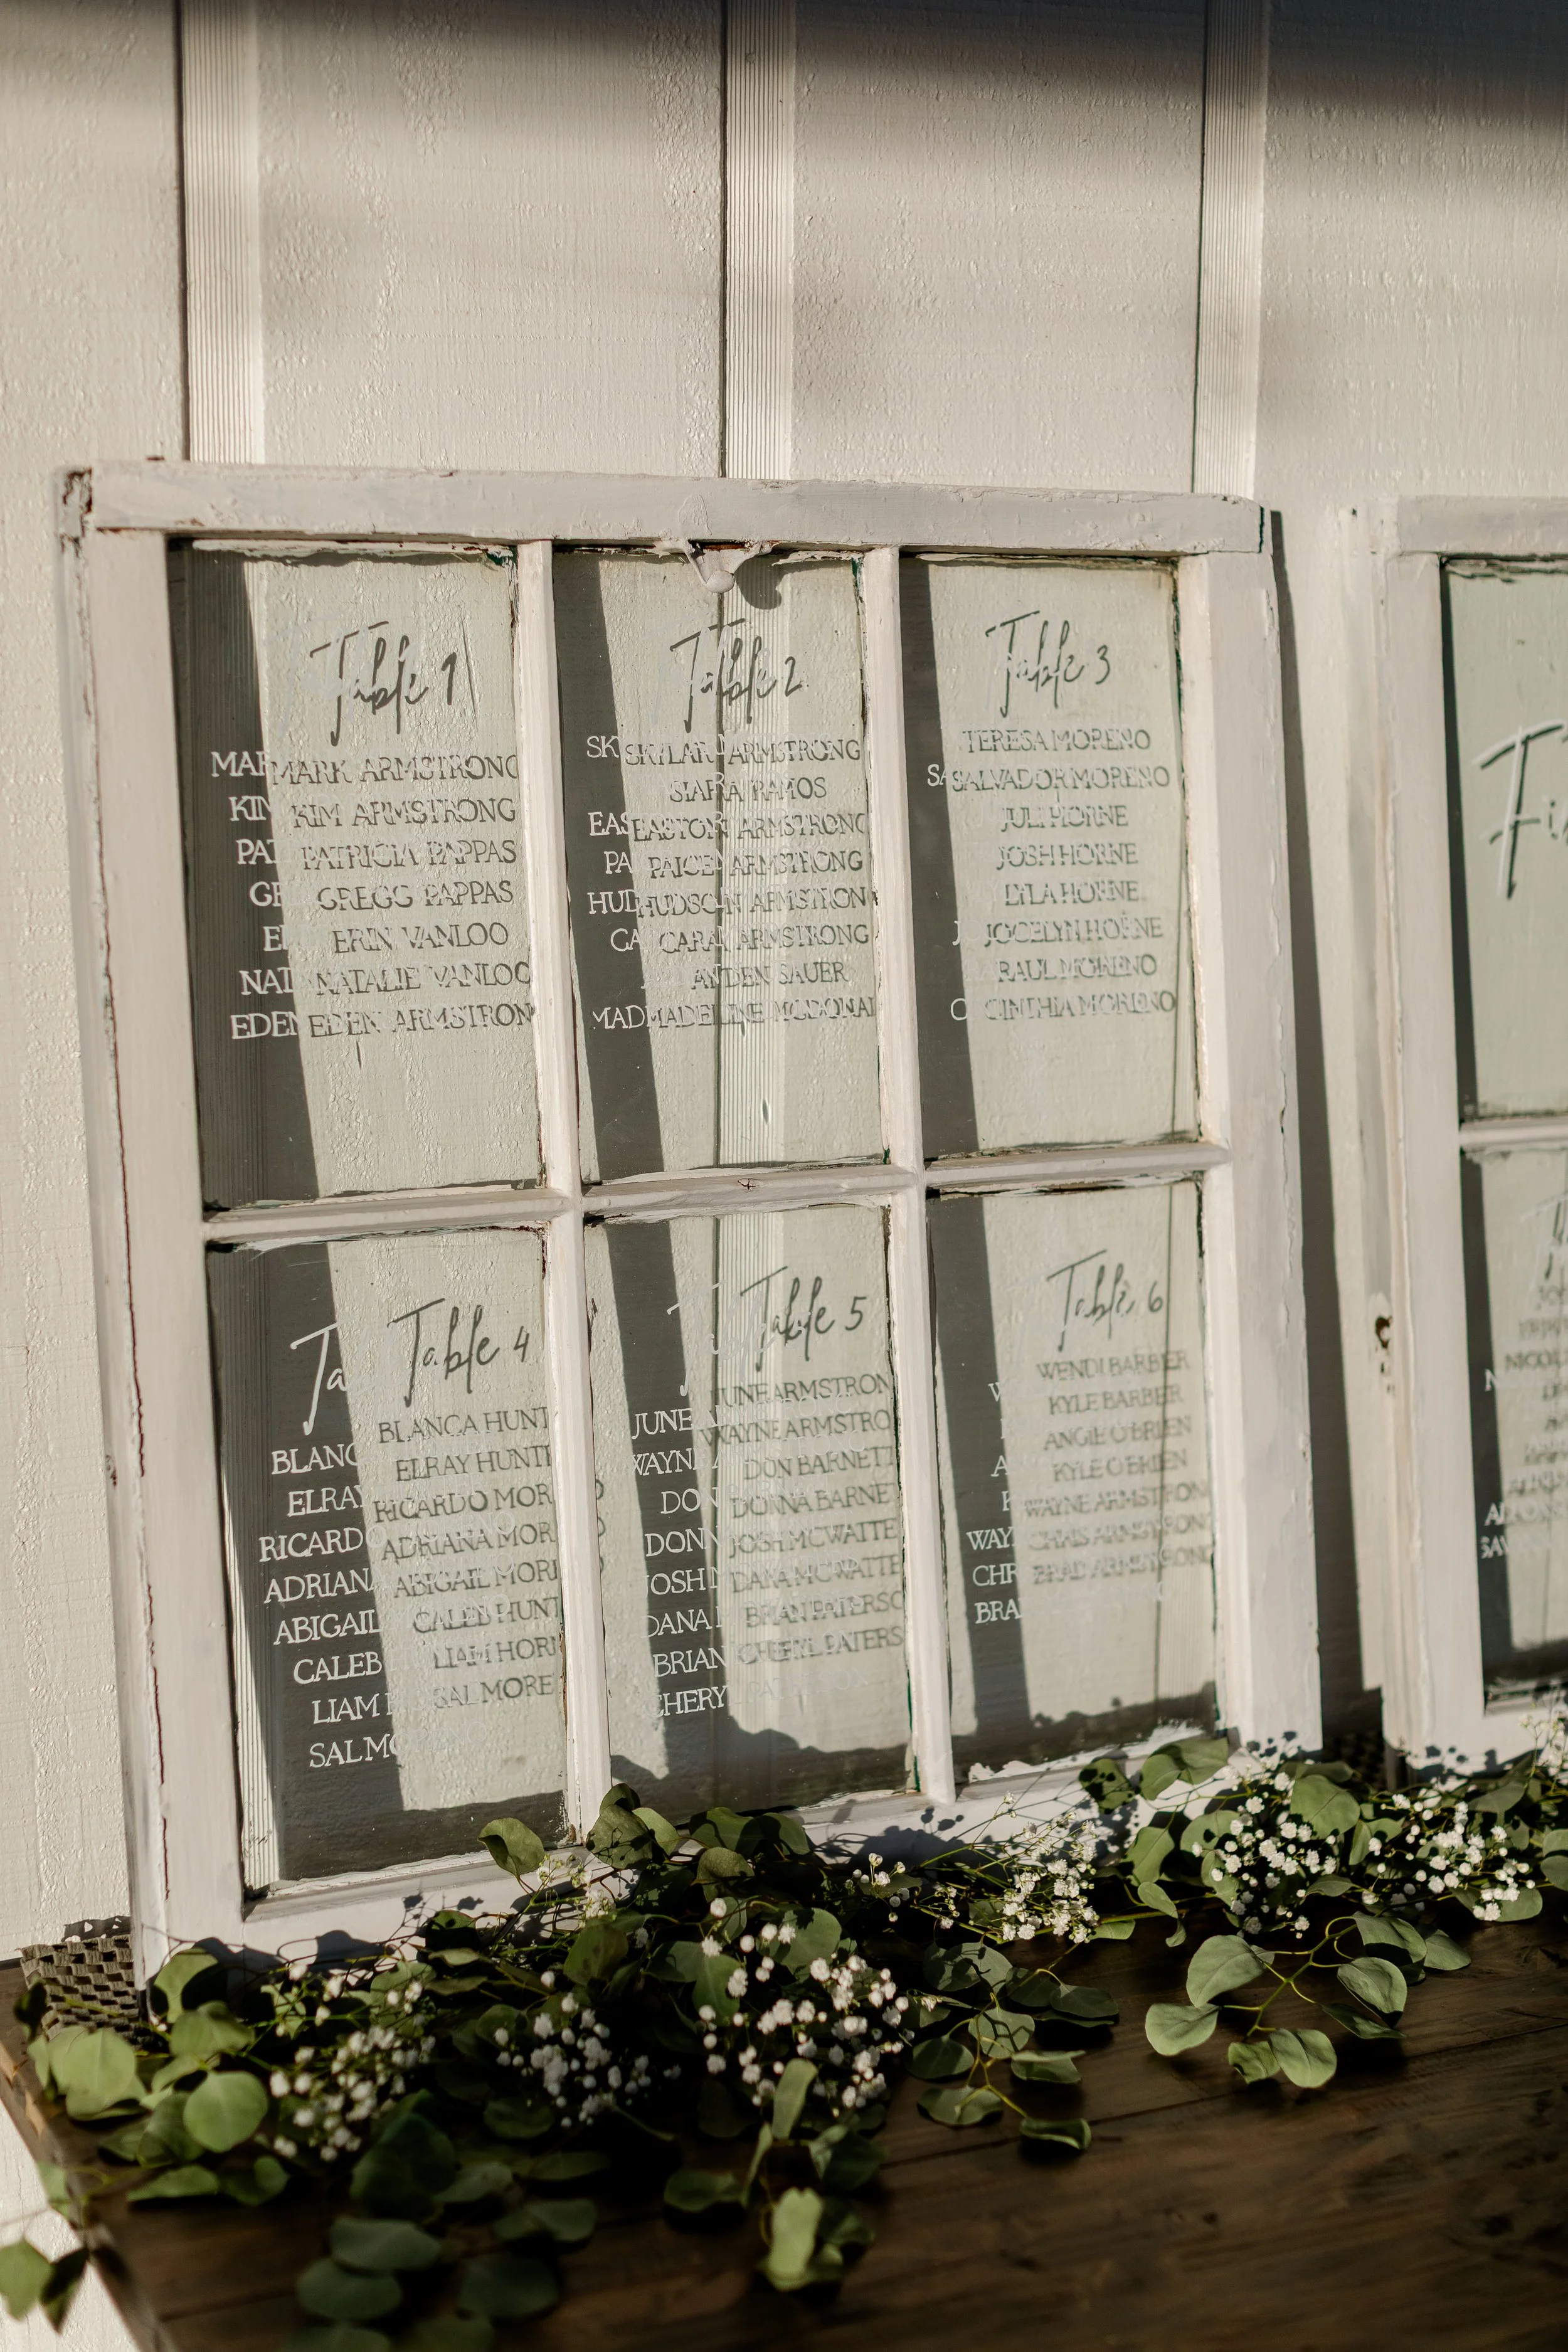 Table 1
MARK ARMSTRONG
KIM ARMSTRONG
PATRICIA PAPPAS
GREGG PAPPAS
ERIN VANLOO
NATALIE VANLOO
EDEN ARMSTRON
Table 2
SKYLAR ARMSTRONG
SIARA RAMOS
EASTON ARMSTRONG
PAICE ARMSTRONG
HUDSON ARMSTRONG
CARA ARMSTRONG
AYDEN SAUER
MADELINE MCDONAL
Table 3
TERESA MORENO
SALVADOR MORENO
JULI HORNE
JOSH HORNE
LYLA HORNE
JOCELYN HORNE
RAUL MORENO
CINTHIA MORENO
Table 4
BLANCA HUNT
ELRAY HUNTE
RICARDO MOR
ADRIANA MOR
ABIGAIL MORE
CALEB HUNT
LIAM HORN
SAL MORE
Table 5
JUNE ARMSTRON
WAYNE ARMSTRO
DON BARNETT
DONNA BARNE
JOSH MCWATTE
DANA MCWATTE
BRIAN PATERSO
CHERYL PATERS
Table 6
WENDI BARBER
KYLE BARBER
ANGIE O'BRIEN
KYLE O'BRIEN
WAYNE ARMSTRONG
CHRIS ARMSTRONG
BRAD ARMSTRONG
Fi